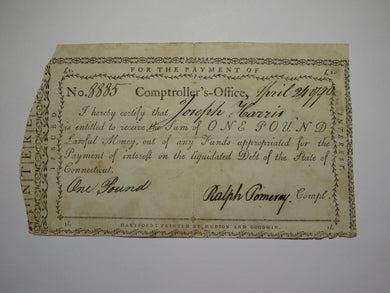 FOR THE PAYMENT OF
No. 8885 Comptroller's-Office, April 24 1790
I hereby certify that Joseph Harris
is entitled to receive the Sum of ONE POUND
Lawful Money, out of any Funds appropriated for the
Payment of interest on the liquidated Debt of the State of
Connecticut.
One Pound Ralph Pomeroy Compt.
HARTFORD: PRINTED BY HUDSON AND GOODWIN.
INTEREST
ISSUED
INTEREST